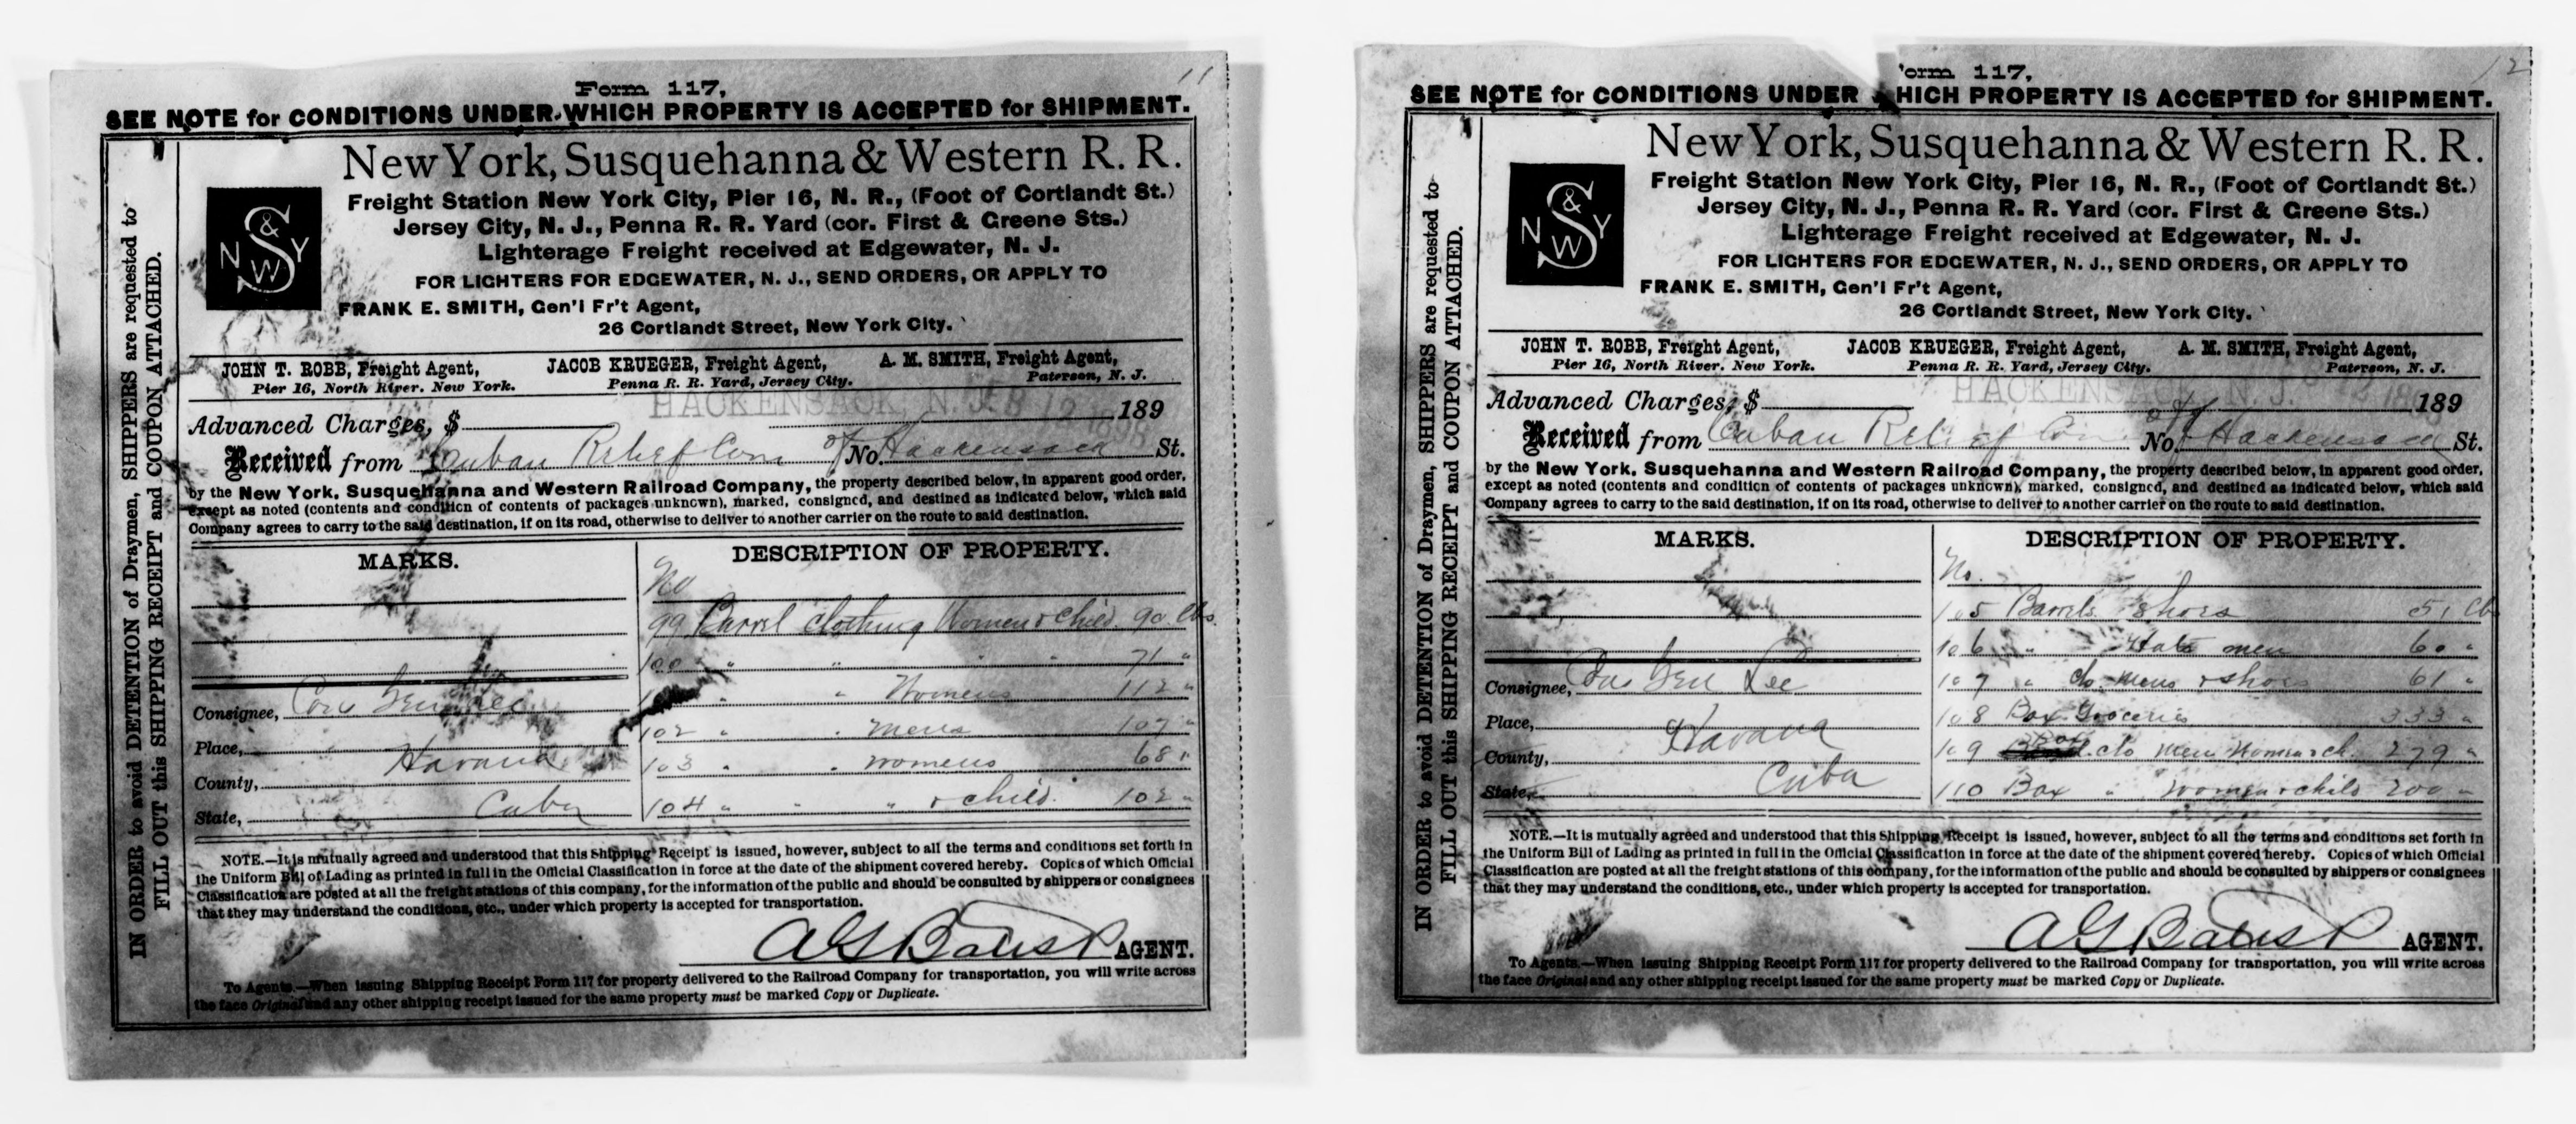 11
Form 117,
SEE NOTE for CONDITIONS UNDER WHICH PROPERTY IS ACCEPTED for SHIPMENT.
IN ORDER to avoid DETENTION of Draymen, SHIPPERS are requested to
FILL OUT this SHIPPING RECEIPT and COUPON ATTACHED.
N S & W Y
New York, Susquehanna & Western R. R.
Freight Station New York City, Pier 16, N. R., (Foot of Cortlandt St.)
Jersey City, N. J., Penna R. R. Yard (cor. First & Greene Sts.)
Lighterage Freight received at Edgewater, N. J.
FOR LIGHTERS FOR EDGEWATER, N. J., SEND ORDERS, OR APPLY TO
FRANK E. SMITH, Gen'l Fr't Agent,
26 Cortlandt Street, New York City.
JOHN T. ROBB, Freight Agent, JACOB KRUEGER, Freight Agent, A. M. SMITH, Freight Agent,
Pier 16, North River. New York. Penna R. R. Yard, Jersey City. Paterson, N. J.
HACKENSACK, N. J.
Advanced Charges, $ 189
Received from Cuban Relief Com of No. Hackensack St.
by the New York, Susquehanna and Western Railroad Company, the property described below, in apparent good order,
except as noted (contents and condition of contents of packages unknown), marked, consigned, and destined as indicated below, which said
Company agrees to carry to the said destination, if on its road, otherwise to deliver to another carrier on the route to said destination.
MARKS. DESCRIPTION OF PROPERTY.
No
99 Barrel clothing Women & Child. 90 lbs.
100 " " " " 71 "
" " Womens 112 "
Consignee, Con Gen Lee
102 " " mens 107 "
Place, Havana
103 " " womens 68 "
County,
104 " " " & child. 102 "
State, Cuba
NOTE.—It is mutually agreed and understood that this Shipping Receipt is issued, however, subject to all the terms and conditions set forth in
the Uniform Bill of Lading as printed in full in the Official Classification in force at the date of the shipment covered hereby. Copies of which Official
Classification are posted at all the freight stations of this company, for the information of the public and should be consulted by shippers or consignees
that they may understand the conditions, etc., under which property is accepted for transportation.
AGENT.
To Agents.—When issuing Shipping Receipt Form 117 for property delivered to the Railroad Company for transportation, you will write across
the face Original and any other shipping receipt issued for the same property must be marked Copy or Duplicate.
12
orm 117,
SEE NOTE for CONDITIONS UNDER HICH PROPERTY IS ACCEPTED for SHIPMENT.
IN ORDER to avoid DETENTION of Draymen, SHIPPERS are requested to
FILL OUT this SHIPPING RECEIPT and COUPON ATTACHED.
N S & W Y
New York, Susquehanna & Western R. R.
Freight Station New York City, Pier 16, N. R., (Foot of Cortlandt St.)
Jersey City, N. J., Penna R. R. Yard (cor. First & Greene Sts.)
Lighterage Freight received at Edgewater, N. J.
FOR LIGHTERS FOR EDGEWATER, N. J., SEND ORDERS, OR APPLY TO
FRANK E. SMITH, Gen'l Fr't Agent,
26 Cortlandt Street, New York City.
JOHN T. ROBB, Freight Agent, JACOB KRUEGER, Freight Agent, A. M. SMITH, Freight Agent,
Pier 16, North River. New York. Penna R. R. Yard, Jersey City. Paterson, N. J.
HACKENSACK, N. J.
Advanced Charges, $ 189
Received from Cuban Relief Com of No. Hackensack St.
by the New York, Susquehanna and Western Railroad Company, the property described below, in apparent good order,
except as noted (contents and condition of contents of packages unknown), marked, consigned, and destined as indicated below, which said
Company agrees to carry to the said destination, if on its road, otherwise to deliver to another carrier on the route to said destination.
MARKS. DESCRIPTION OF PROPERTY.
No.
105 Barrels shoes 51 lbs
106 " Hats men 60 "
Consignee, Con Gen Lee
107 " clo mens & shoes 61 "
Place, Havana
108 Box Groceries 333 "
County,
109 Box clo men Women & ch. 279 "
State, Cuba
110 Box " Women & child 200 "
NOTE.—It is mutually agreed and understood that this Shipping Receipt is issued, however, subject to all the terms and conditions set forth in
the Uniform Bill of Lading as printed in full in the Official Classification in force at the date of the shipment covered hereby. Copies of which Official
Classification are posted at all the freight stations of this company, for the information of the public and should be consulted by shippers or consignees
that they may understand the conditions, etc., under which property is accepted for transportation.
AGENT.
To Agents.—When issuing Shipping Receipt Form 117 for property delivered to the Railroad Company for transportation, you will write across
the face Original and any other shipping receipt issued for the same property must be marked Copy or Duplicate.